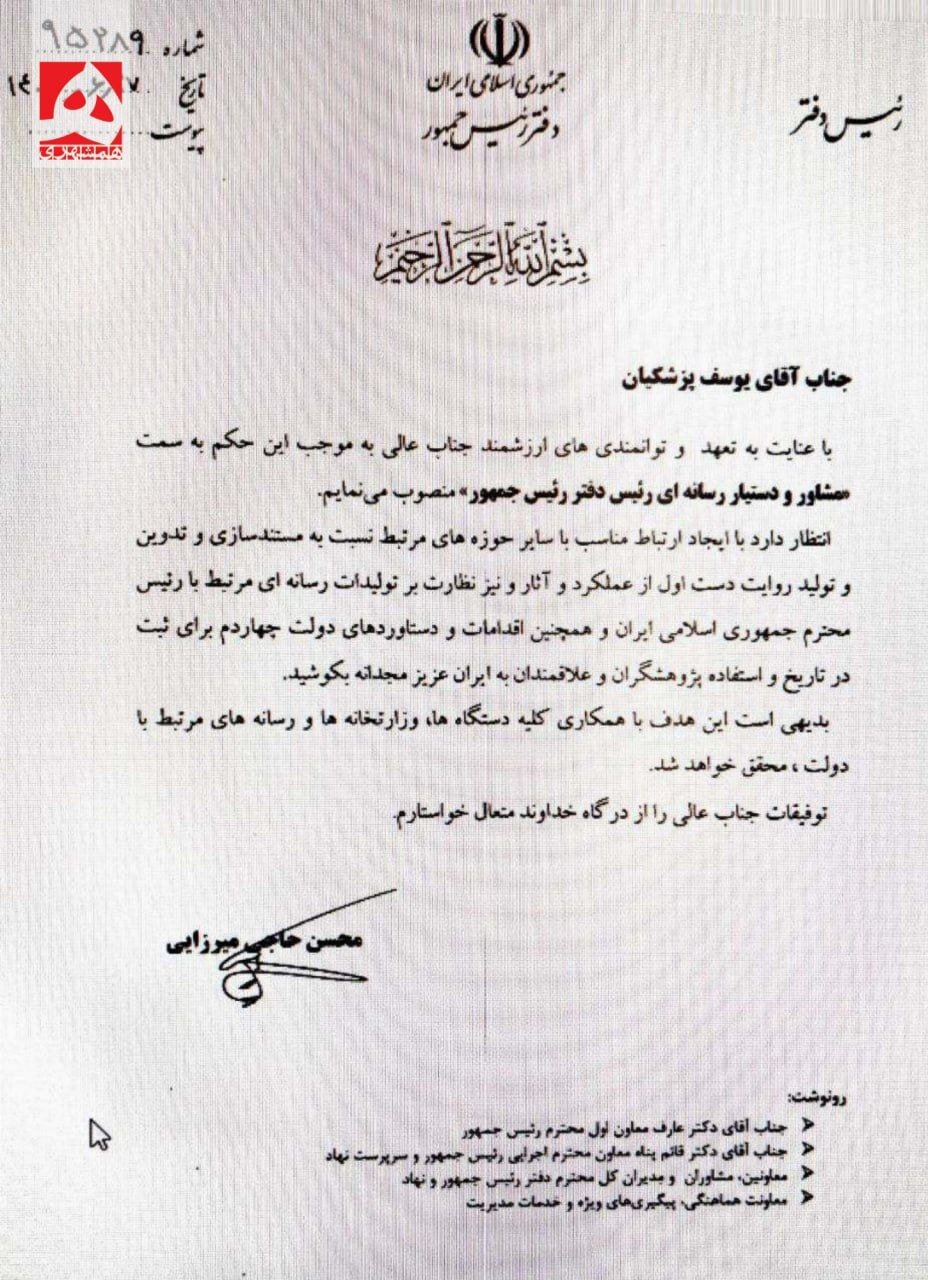 جمهوری اسلامی ایران
دفتر رئیس جمهور
رئیس دفتر
شماره ۹۵۲۸۹
تاریخ
پیوست
همشهری
بسم الله الرحمن الرحیم
جناب آقای یوسف پزشکیان
با عنایت به تعهد و توانمندی های ارزشمند جناب عالی به موجب این حکم به سمت
«مشاور و دستیار رسانه ای رئیس دفتر رئیس جمهور» منصوب می‌نمایم.
انتظار دارد با ایجاد ارتباط مناسب با سایر حوزه های مرتبط نسبت به مستندسازی و تدوین
و تولید روایت دست اول از عملکرد و آثار و نیز نظارت بر تولیدات رسانه ای مرتبط با رئیس
محترم جمهوری اسلامی ایران و همچنین اقدامات و دستاوردهای دولت چهاردم برای ثبت
در تاریخ و استفاده پژوهشگران و علاقمندان به ایران عزیز مجدانه بکوشید.
بدیهی است این هدف با همکاری کلیه دستگاه ها، وزارتخانه ها و رسانه های مرتبط با
دولت ، محقق خواهد شد.
توفیقات جناب عالی را از درگاه خداوند متعال خواستارم.
محسن حاجی میرزایی
رونوشت:
جناب آقای دکتر عارف معاون اول محترم رئیس جمهور
جناب آقای دکتر قائم پناه معاون محترم اجرایی رئیس جمهور و سرپرست نهاد
معاونین، مشاوران و مدیران کل محترم دفتر رئیس جمهور و نهاد
معاونت هماهنگی، پیگیری‌های ویژه و خدمات مدیریت